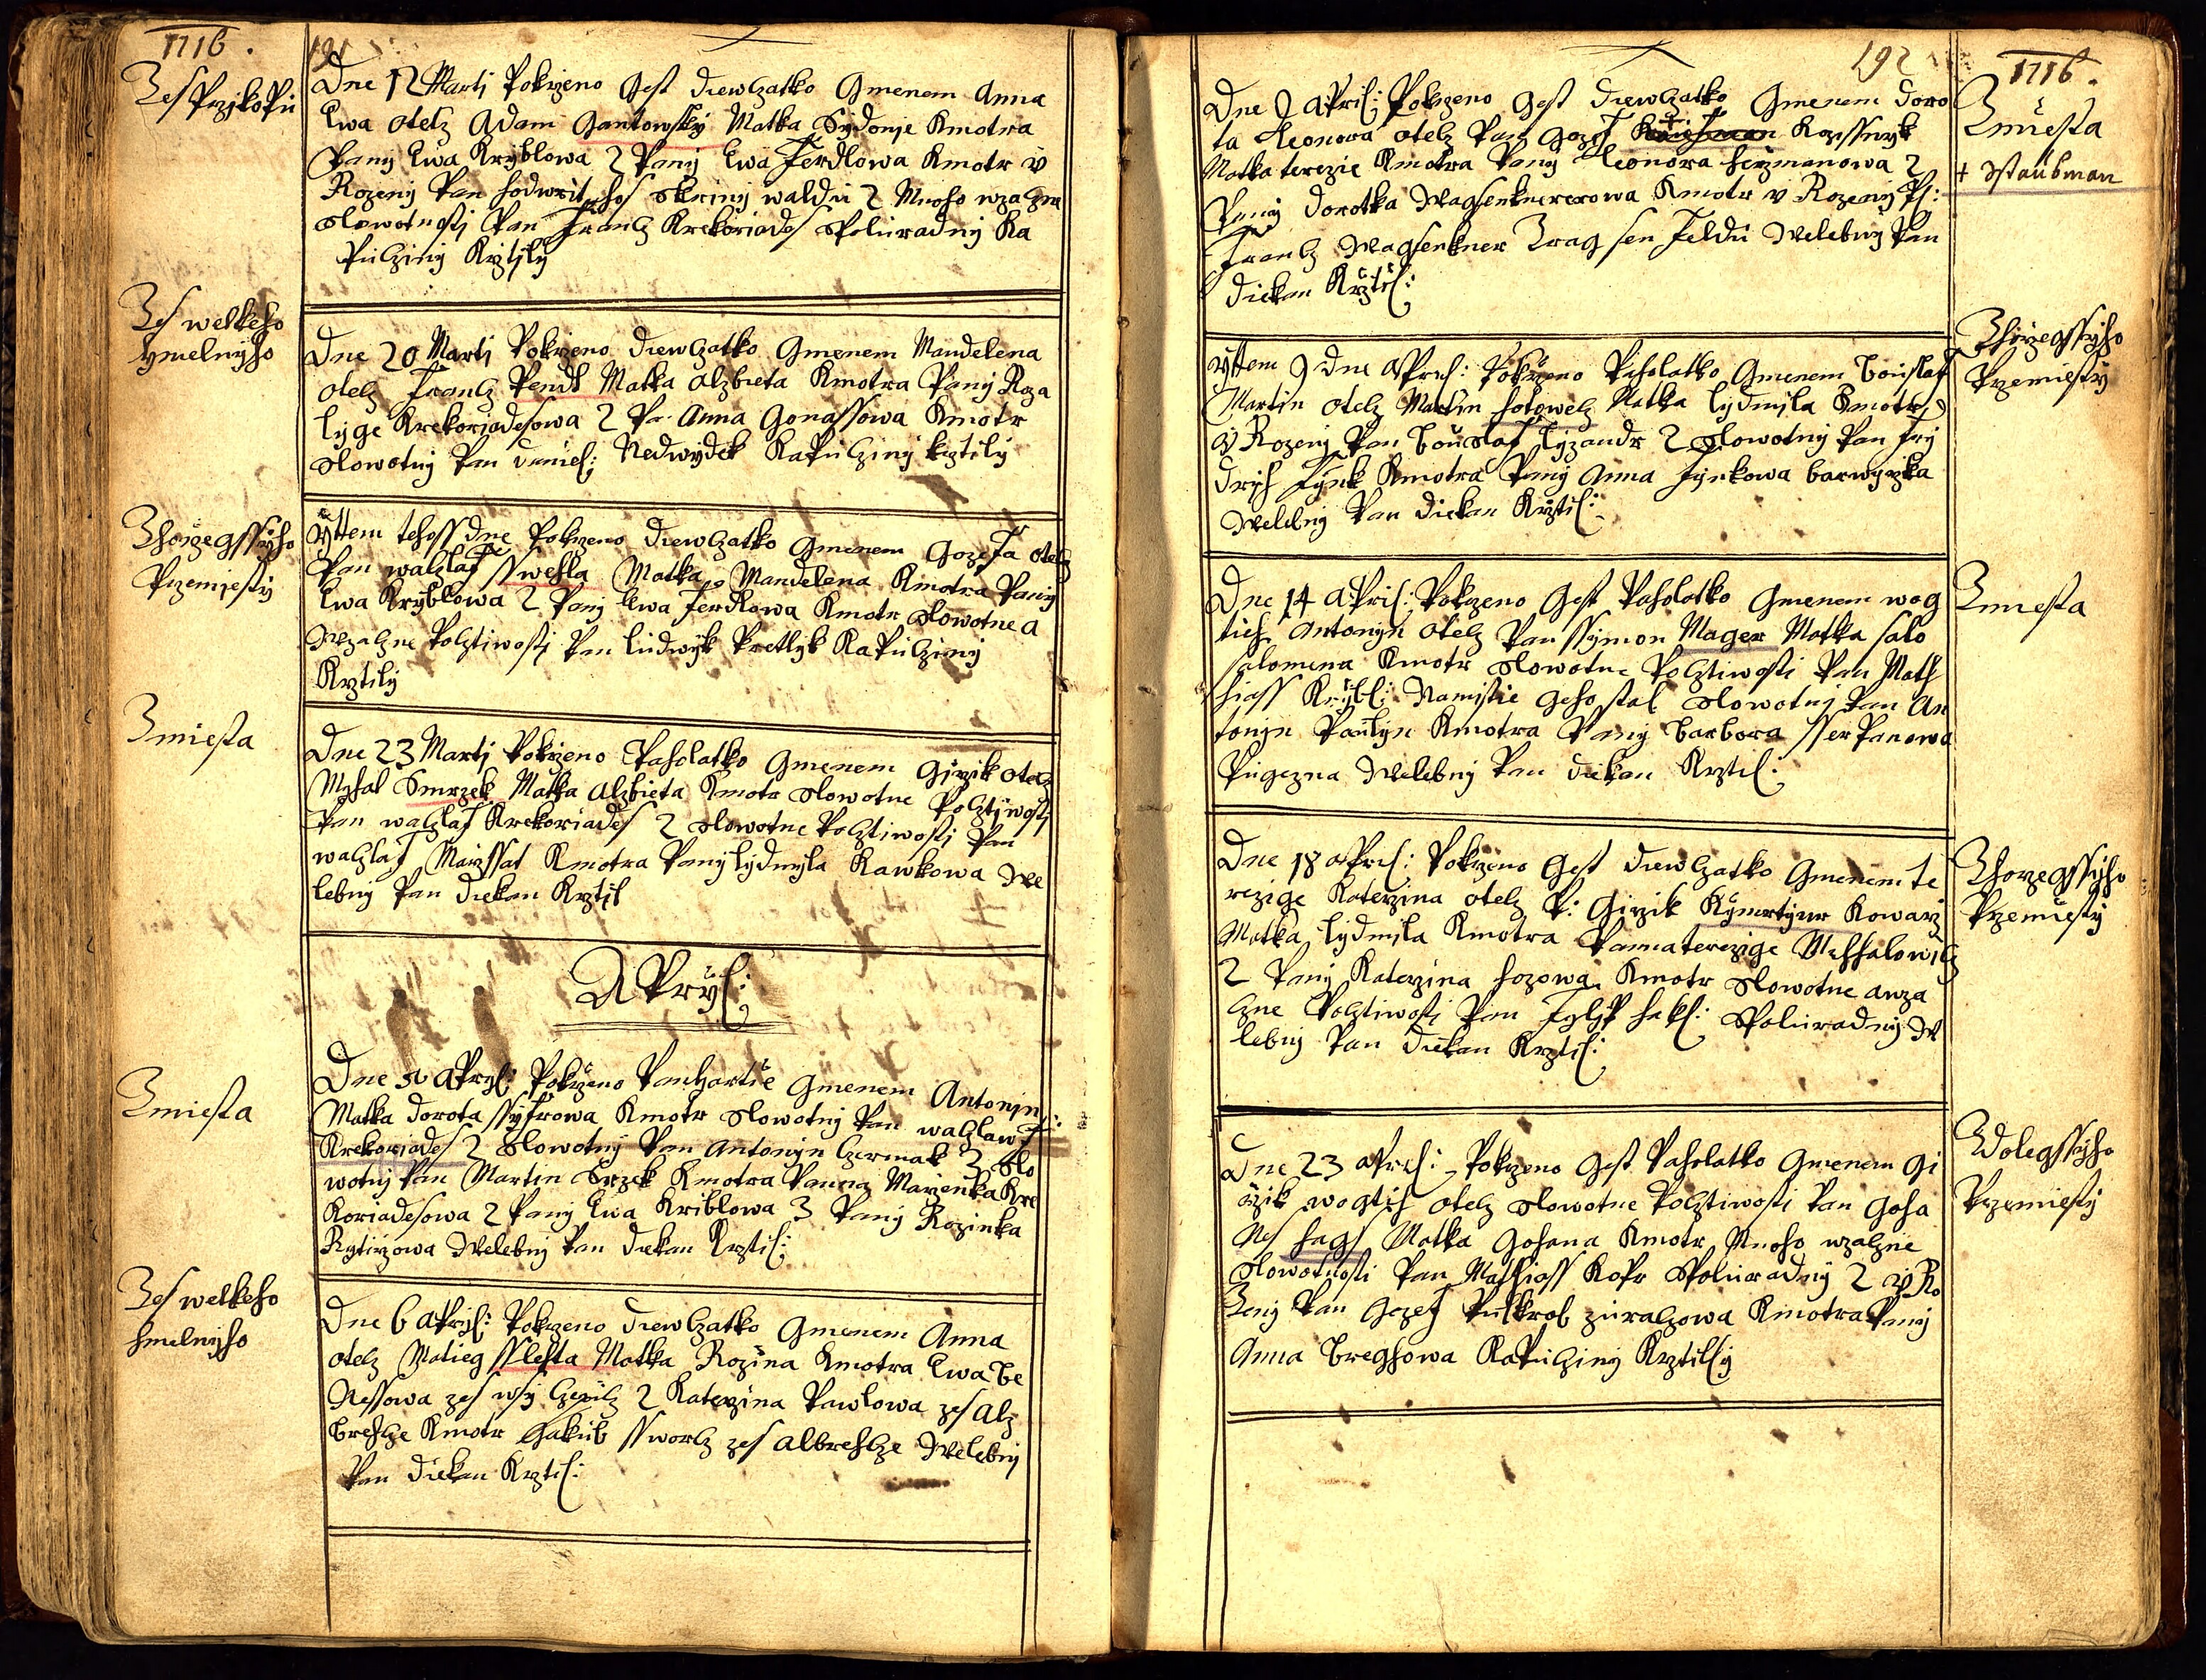 1716.
191
Zes Przikopu
Dne 12 Marti Pokrzeno Gest diewczatko Gmenem Anna
Ewa otecz Adam Gantowsky Matka Sydonie Kmotra
Pany Ewa Kryblowa 2 Pany Ewa Ferdlowa Kmotr v
Rozeny Pan
Slowotnosti Pan Frantz Krekoriades Spoluradny Ka
Puczini Krztily
Zes welkeho
Dne 20 Marti Pokrzeno diewczatko Gmenem Mandelena
otecz Frantz Pendl Matka Alzbieta Kmotra Pany Roza
lyge Krekoriadesowa 2 Pa Anna Gonassowa Kmotr
Slowotny Pan daniel: Nedwydek KaPucziny krztily
Zhorzegssyho
Przemiesty
yttem tehoss dne Pokrzeno diewczatko Gmenem Gozefa otecz
Pan waczlaf sswehla Matka Mandelena Kmotra Pany
Ewa Kryblowa 2 Pany Ewa Ferdlowa Kmotr Slowotne a
Wzaczne Pocztiwosti Pan ludwyk Pretlyk KaPucziny
Krztily
Zmiesta
Dne 23 Marti Pokrzeno Paholatko Gmenem Girzik otecz
Myhal Smrzek Matka Alzbieta Kmotr Slowotne Pocztiwosti
Pan waczlaf Krekoriades 2 Slowotne Pocztiwosti Pan
waczlaf Marssat Kmotra Pany lydmyla Kawkowa We
lebny Pan diekan Krztil
APryl:
Zmiesta
Dne 5 APryl: Pokrzeno Panchartie Gmenem Antonin
Matka dorota ssyfrowa Kmotr Slowotny Pan waczlaw
Krekoriades 2 Slowotny Pan Antonyn Czermak 3 Slo
wotny Pan Martin Brzek Kmotra Panna Marzenka Kre
Koriadesowa 2 Pany Ewa Kriblowa 3 Pany Rozinka
Rytirzowa Welebny Pan diekan Krztil:
Zes welkeho
Hmelnyho
Dne 6 APryl: Pokrzeno diewczatko Gmenem Anna
otecz Matieg sslehta Matka Rozina Kmotra Ewa Be
Nessowa zes wsy 2 Katerzina Pawlowa zes Alz
brehcze Kmotr Gakub ssworcz zes Albrehcze Welebny
Pan diekan Krztil:
192
1716.
Dne 9 APril: Pokrzeno Gest diewczatko Gmenem doro
ta Leonora otecz Pan Gozef Kozissnyk
Matka terezie Kmotra Pany Leonora Heymanowa 2
Pany dorotka Wagsenknererowa Kmotr v Rozeny P:
Frantz Wagsenkner Zrag sen Feldu Welebny Pan
diekan Krztil:
Zmiesta
+ Staubman
yttem 9 dne APril: Pokrzeno Paholatko Gmenem Bouslaf
Martin otecz Martin Hotowecz Matka lydmila Kmotr
v Rozeny Pan Bouslaf lyzandr 2 Slowotny Pan Fry
drych Fynk Kmotra Pany Anna Fynkowa barwyrzka
Welebny Pan diekan Krztil:
Zhorzegssyho
Przemiesty
Dne 14 APril: Pokrzeno Gest Paholatko Gmenem wog
tieh Antonyn otecz Pan ssymon Mager Matka salo
salomena Kmotr Slowotne Pocztiwosti Pan Math
hiass Krybl: Namistie geho stal Slowotny Pan An
tonyn Paulyn Kmotra Pany barbora sserPanowa
Welebny Pan diekan Krztil:
Zmiesta
Dne 18 APril: Pokrzeno Gest diewczatko Gmenem te
rezige Katerzina otecz P: Girzik Kowarz
Matka lydmila Kmotra Panna terezige
2 Pany Katerzina Hozowa Kmotr Slowotne awza
czne Pocztiwosti Pan Fylyp Hakl: Spoluradny We
lebny Pan diekan Krztil:
Zhorzegssyho
Przemiesty
Dne 23 APril: Pokrzeno Gest Paholatko Gmenem Gi
rzik wogtieh otecz Slowotne Pocztiwosti Pan Goha
Nes Hagl Matka Gohana Kmotr Mnoho wzaczne
Slowotnosti Pan Mathiass Kofr Spoluradny 2 v Ro
Zeny Pan Gozef Kmotra Pany
Anna Kapucziny Krztilly
Zdolegssyho
Przemiesty